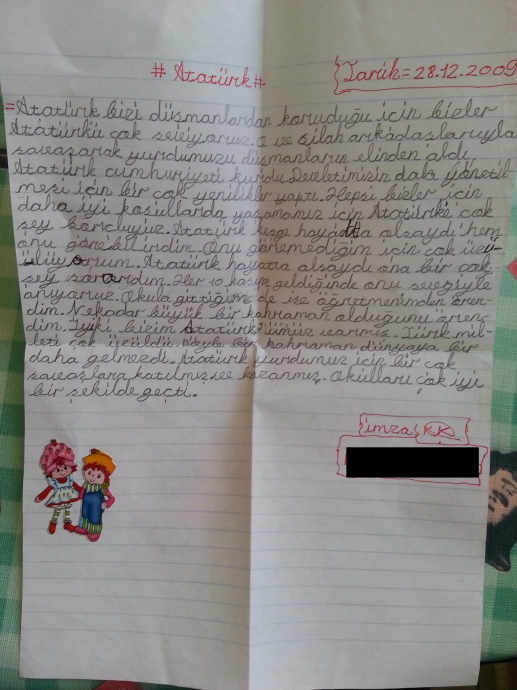 # Atatürk #
Tarih = 28.12.2009
= Atatürk bizi düşmanlardan koruduğu için bizler
Atatürkü çok seviyoruz. O ve silah arkadaşlarıyla
savaşarak yurdumuzu düşmanların elinden aldı
Atatürk cumhuriyeti kurdu. Devletimizin daha yönetil-
mesi için bir çok yenilikler yaptı. Hepsi bizler için
daha iyi koşullarda yaşamamız için Atatürk'e çok
şey borcluyuz. Atatürk keşge hayatta olsaydı hem
onu göre bilirdim. Onu göremediğim için çok üzü-
lüyorum. Atatürk hayatta olsaydı ona bir çok
şey sorardım. Her 10 kasım geldiğinde onu sevgiyle
anıyoruz. Okula gittiğim de ise öğretmenimden ören-
dim. Nekadar büyük bir kahraman olduğunu ören-
dim. İyiki bizim Atatürk'ümüz varmış. Türk mil-
leti çok üzüldü. Böyle bir kahraman dünyaya bir
daha gelmezdi. Atatürk yurdumuz için bir çok
savaşlara katılmış ve kazanmış. Okulları çok iyi
bir şekilde geçti.
imza RK